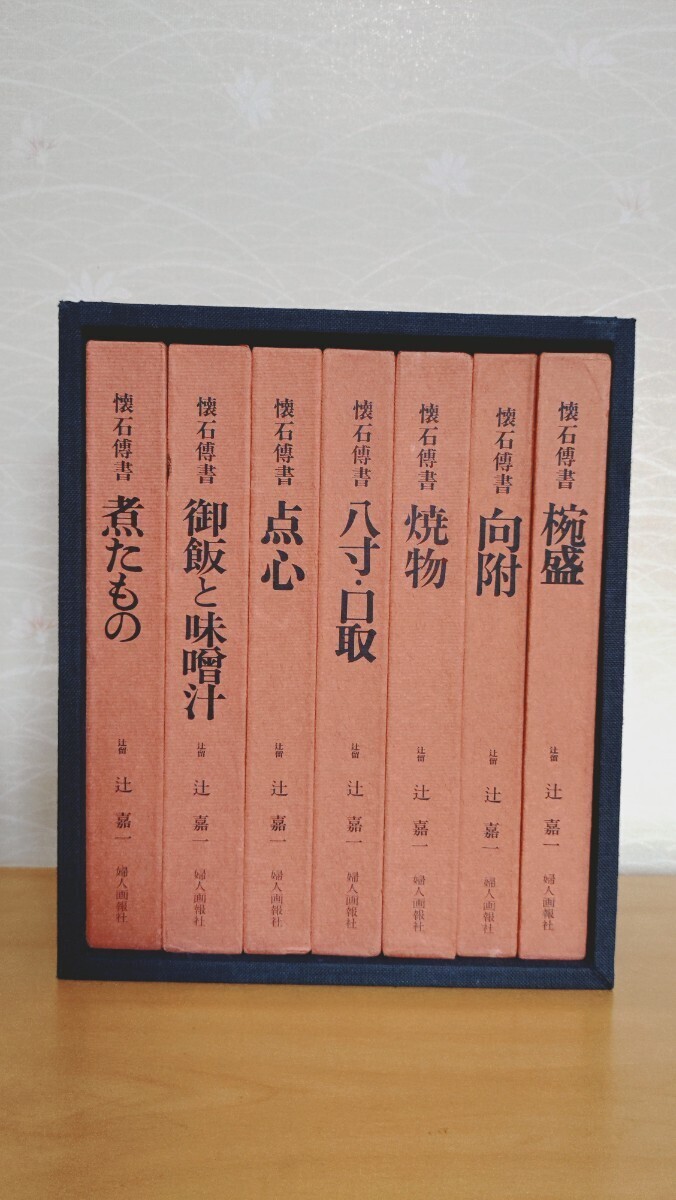 懐石傅書
椀盛
辻留
辻嘉一
婦人画報社
懐石傅書
向附
辻留
辻嘉一
婦人画報社
懐石傅書
焼物
辻留
辻嘉一
婦人画報社
懐石傅書
八寸・口取
辻留
辻嘉一
婦人画報社
懐石傅書
点心
辻留
辻嘉一
婦人画報社
懐石傅書
御飯と味噌汁
辻留
辻嘉一
婦人画報社
懐石傅書
煮たもの
辻留
辻嘉一
婦人画報社